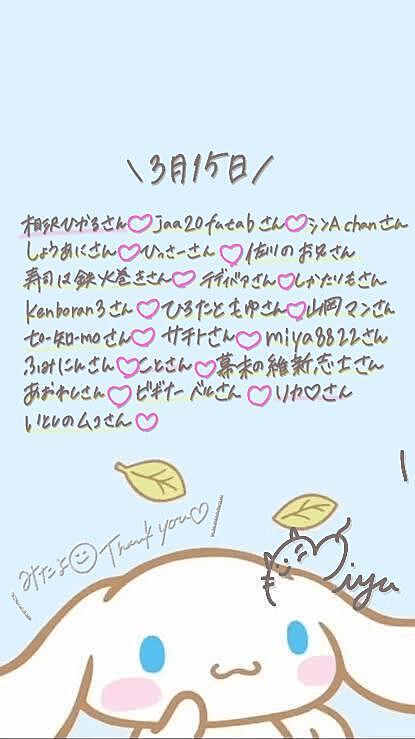 \3月15日/
相沢ひかるさん♡jaa20futabさん♡シンAchanさん
しょうあにさん♡ひっさーさん♡佐川のお兄さん
寿司は鉄火巻きさん♡テディパァさん♡しゃかりきさん
Kenboran3さん♡ひろたともゆさん♡山岡マンさん
t0-知-moさん♡サチトさん♡miya8822さん
ふみにんさん♡ことさん♡幕末の維新志士さん
あおわしさん♡ビギナーベルさん♡リカ♡さん
いとしのムコさん♡
\みたよ☺Thank you♡/
Miyu